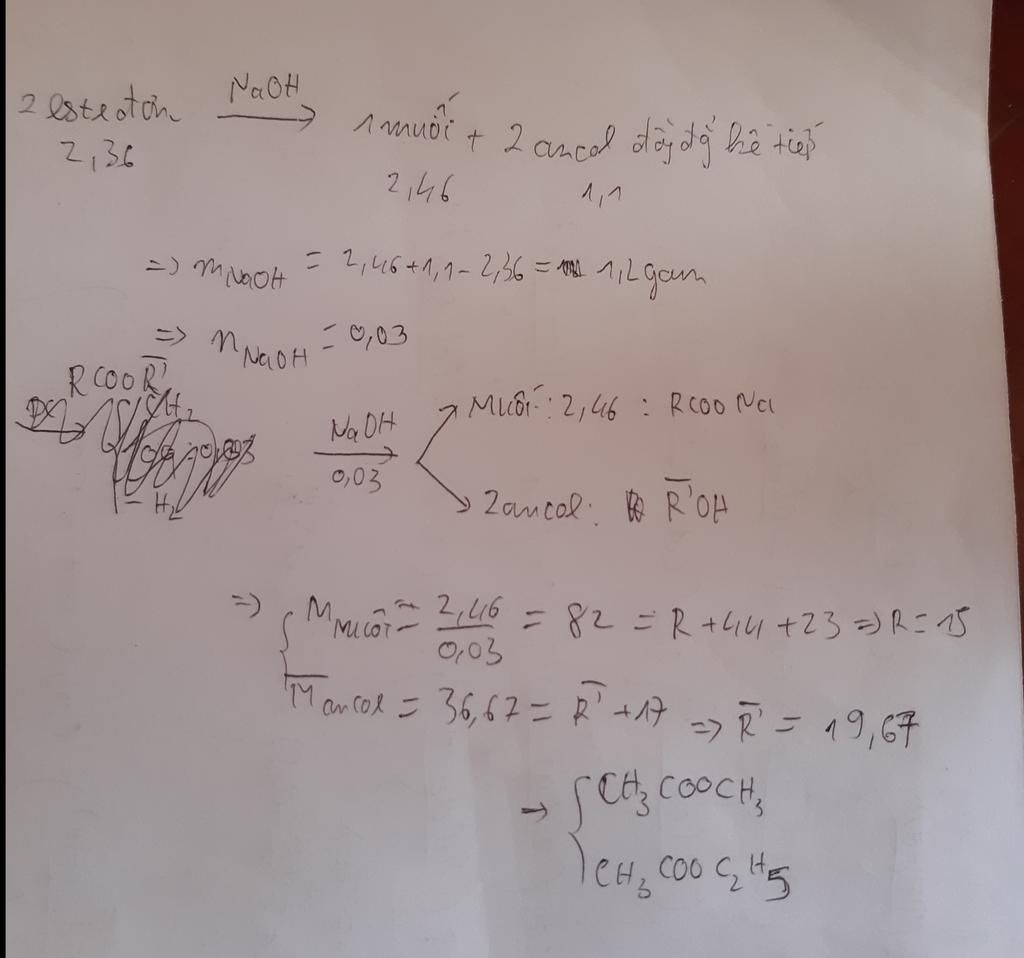 2 este đơn NaOH → 1 muối + 2 ancol dãy đ² kế tiếp
2,36 2,46 1,1
=> mNaOH = 2,46+1,1-2,36 = 1,2gam
=> nNaOH = 0,03
RCOOR̅'
NaOH → Muối: 2,46 : RCOO Na
0,03
2 ancol: R̅'OH
=> { Mmuối = 2,46/0,03 = 82 = R+44+23 => R=15
M̅ancol = 36,67 = R̅'+17 => R̅' = 19,67
=> { CH3COOCH3
CH3COOC2H5